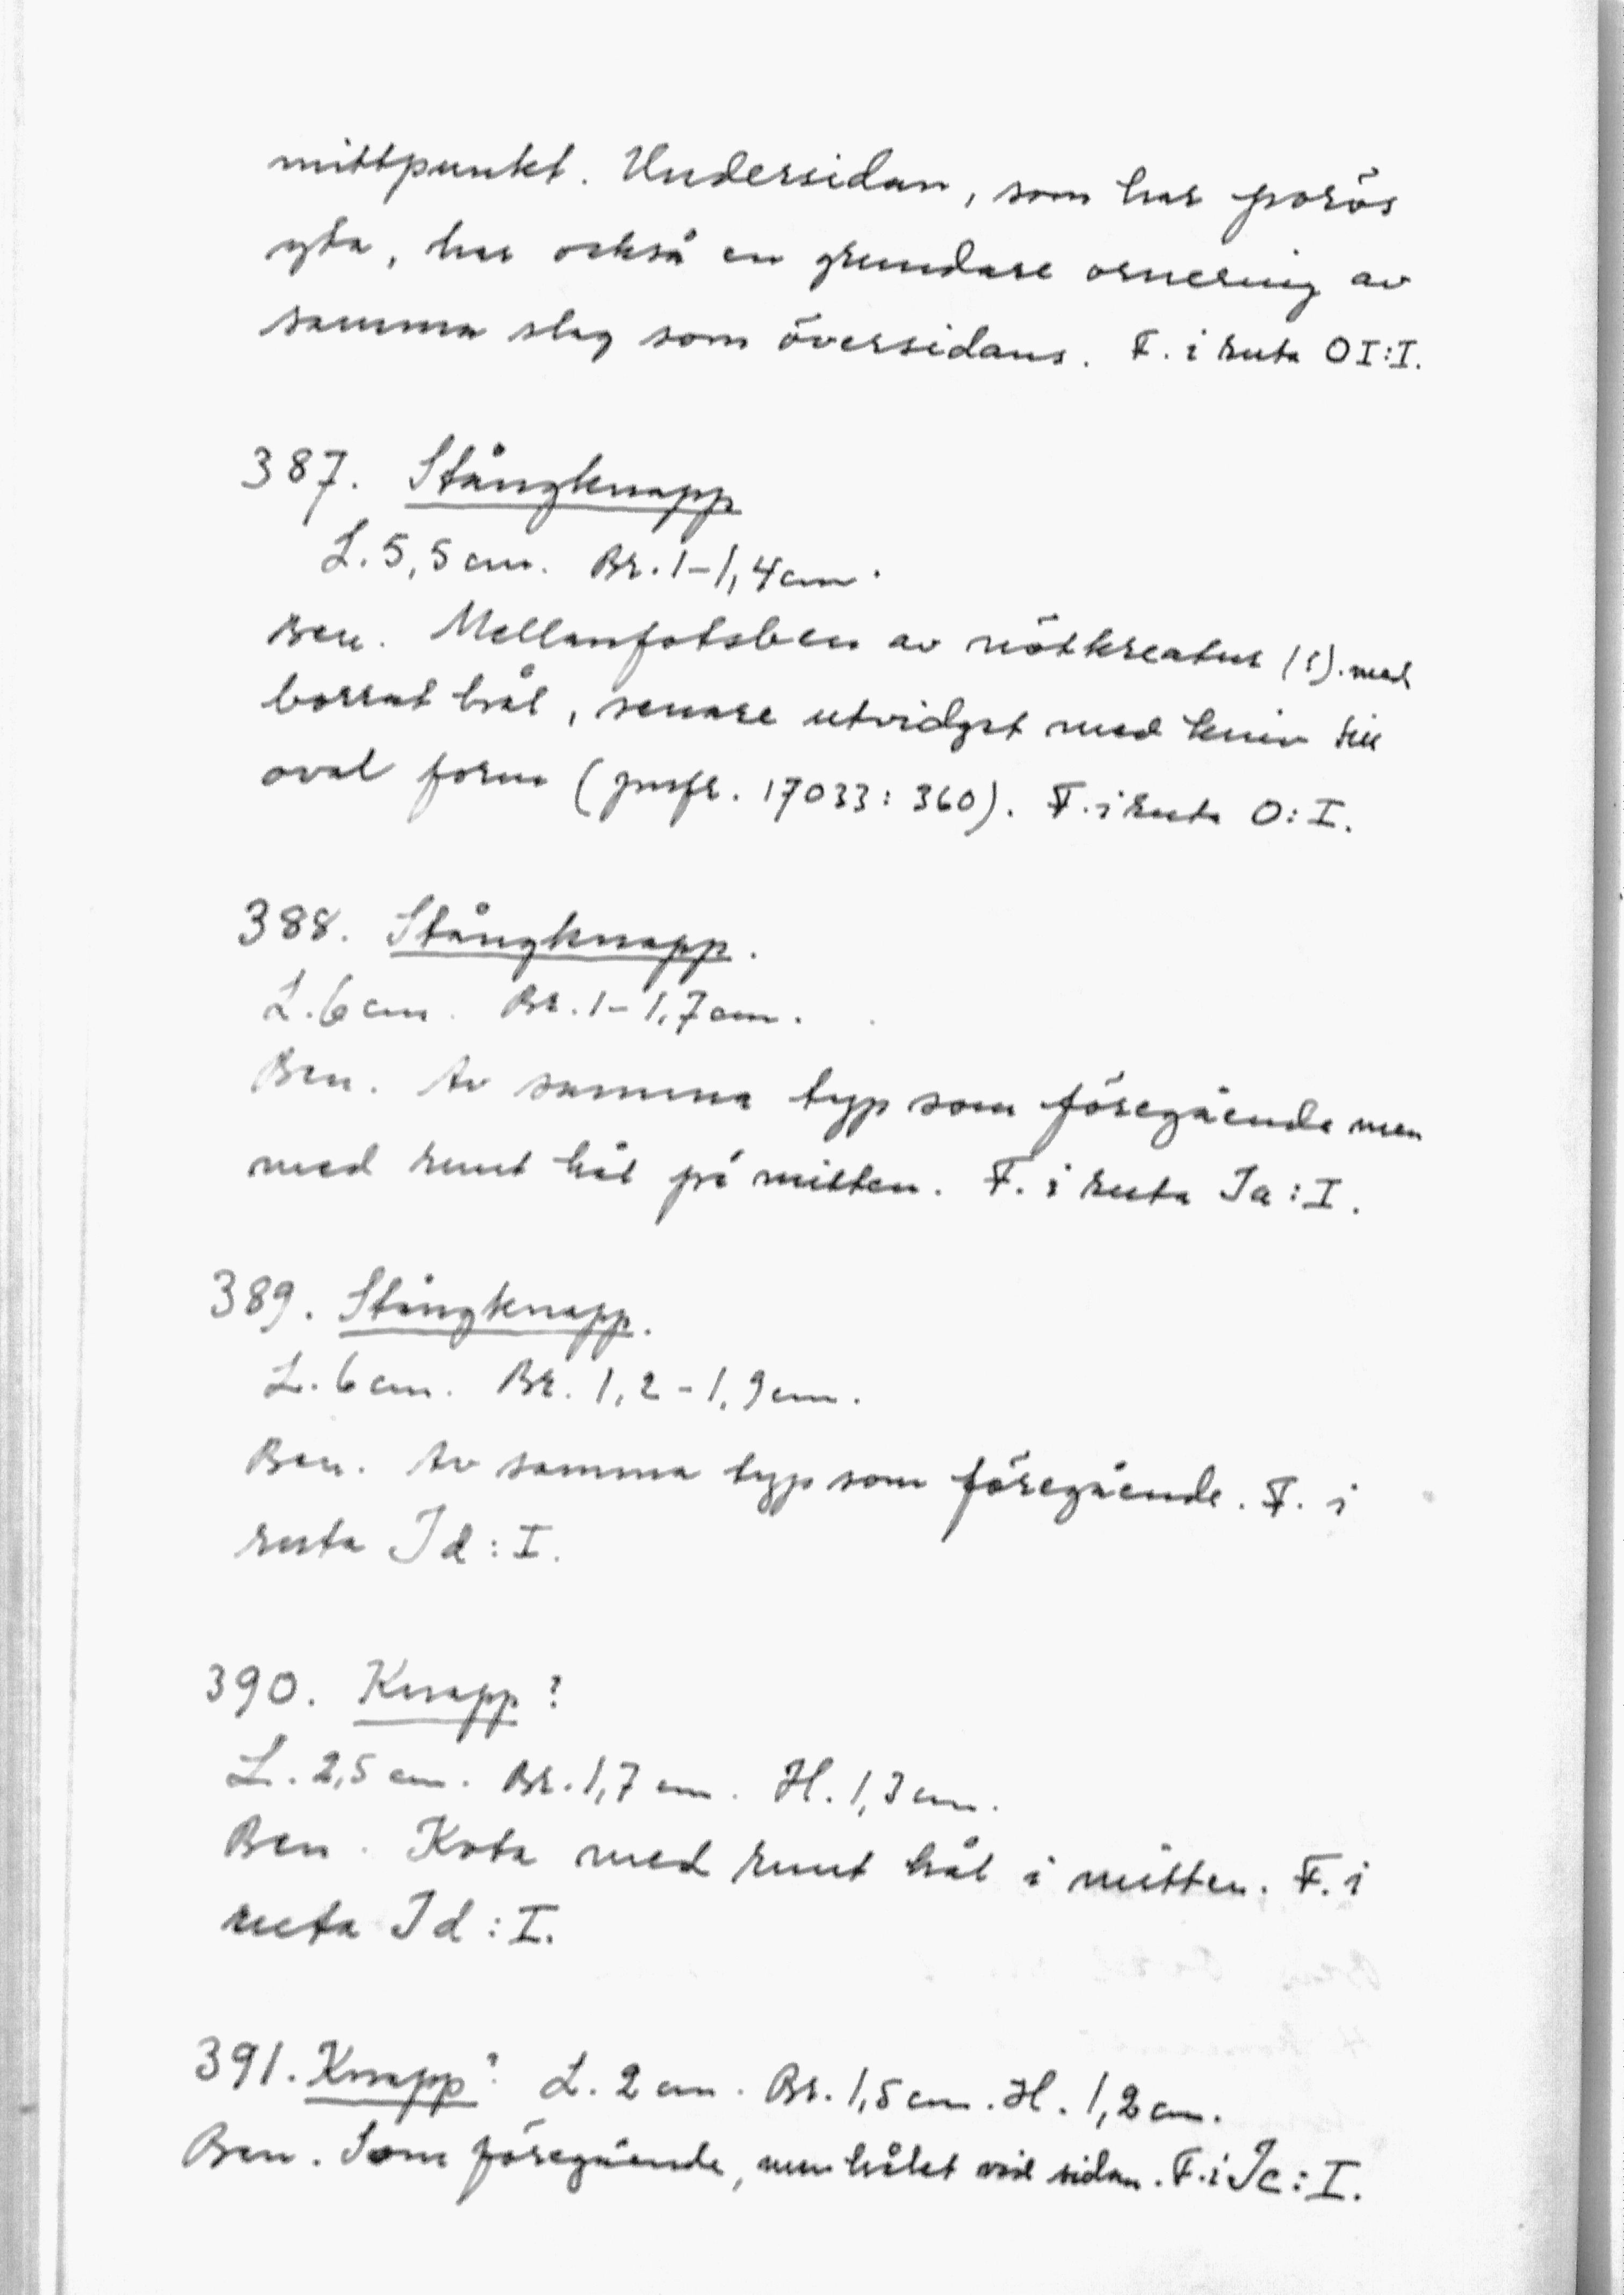 mittpunkt. Undersidan, som har porös
yta, har också en grundare ornering av
samma slag som översidans. F. i ruta OI:I.
387. Stångknapp
L. 5,5 cm. Br. 1-1,4 cm.
Ben. Mellanfotsben av nötkreatur (?). med
borrat hål, senare utvidgat med kniv till
oval form (jmfr. 17033:360). F. i ruta O:I.
388. Stångknapp.
L. 6 cm. Br. 1-1,7 cm.
Ben. Av samma typ som föregående men
med runt hål på mitten. F. i ruta Ia:I.
389. Stångknapp.
L. 6 cm. Br. 1,2-1,9 cm.
Ben. Av samma typ som föregående. F. i
ruta Id:I.
390. Knapp?
L. 2,5 cm. Br. 1,7 cm. H. 1,3 cm.
Ben. Kota med runt hål i mitten. F. i
ruta Id:I.
391. Knapp? L. 2 cm. Br. 1,5 cm. H. 1,2 cm.
Ben. Som föregående, men hålet vid sidan. F. i Ic:I.